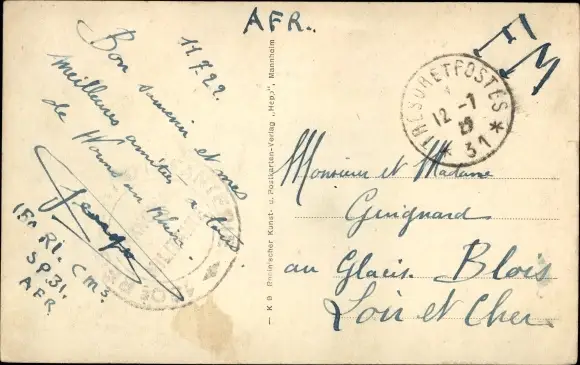 AFR..
FM
11.7.22.
Bon souvenir et mes
meilleures amitiés à tous
de Worms am Rhin
1Er RI. CM3
SP.31.
AFR.
K B Rhein'scher Kunst- u. Postkarten-Verlag „Hepu", Mannheim
TRESOR ET POSTES
12-7
22
* 31 *
Monsieur et Madame
Guignard
au Glacis. Blois
Loir et Cher